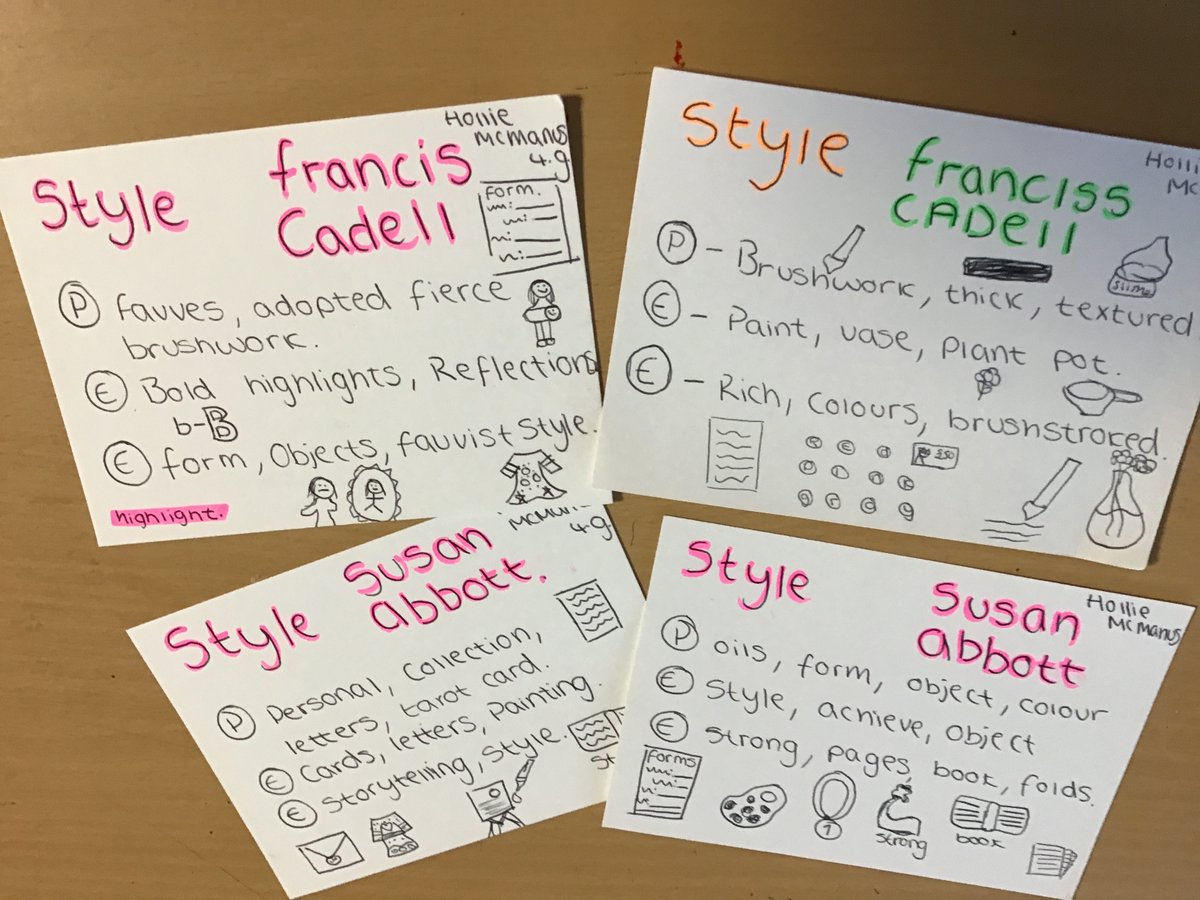 Hollie
McManus
4.9
Style francis
Cadell
form.
P fauves, adopted fierce
brushwork.
E Bold highlights, Reflections
b-B
E form, Objects, fauvist style.
highlight.
Style Franciss
CADell
Holli
Mc
P - Brushwork, thick, textured
slime
E - Paint, vase, plant pot.
E - Rich, colours, brushstroked.
McManu
4.9
Style Susan
abbott.
P Personal, Collection,
letters, tarot card.
E Cards, letters, painting.
E Storytelling, style.
St
Style Susan
abbott
Hollie
McManus
P oils, form, object, colour
E style, achieve, object
E strong, pages, book, folds.
forms
1
strong
book